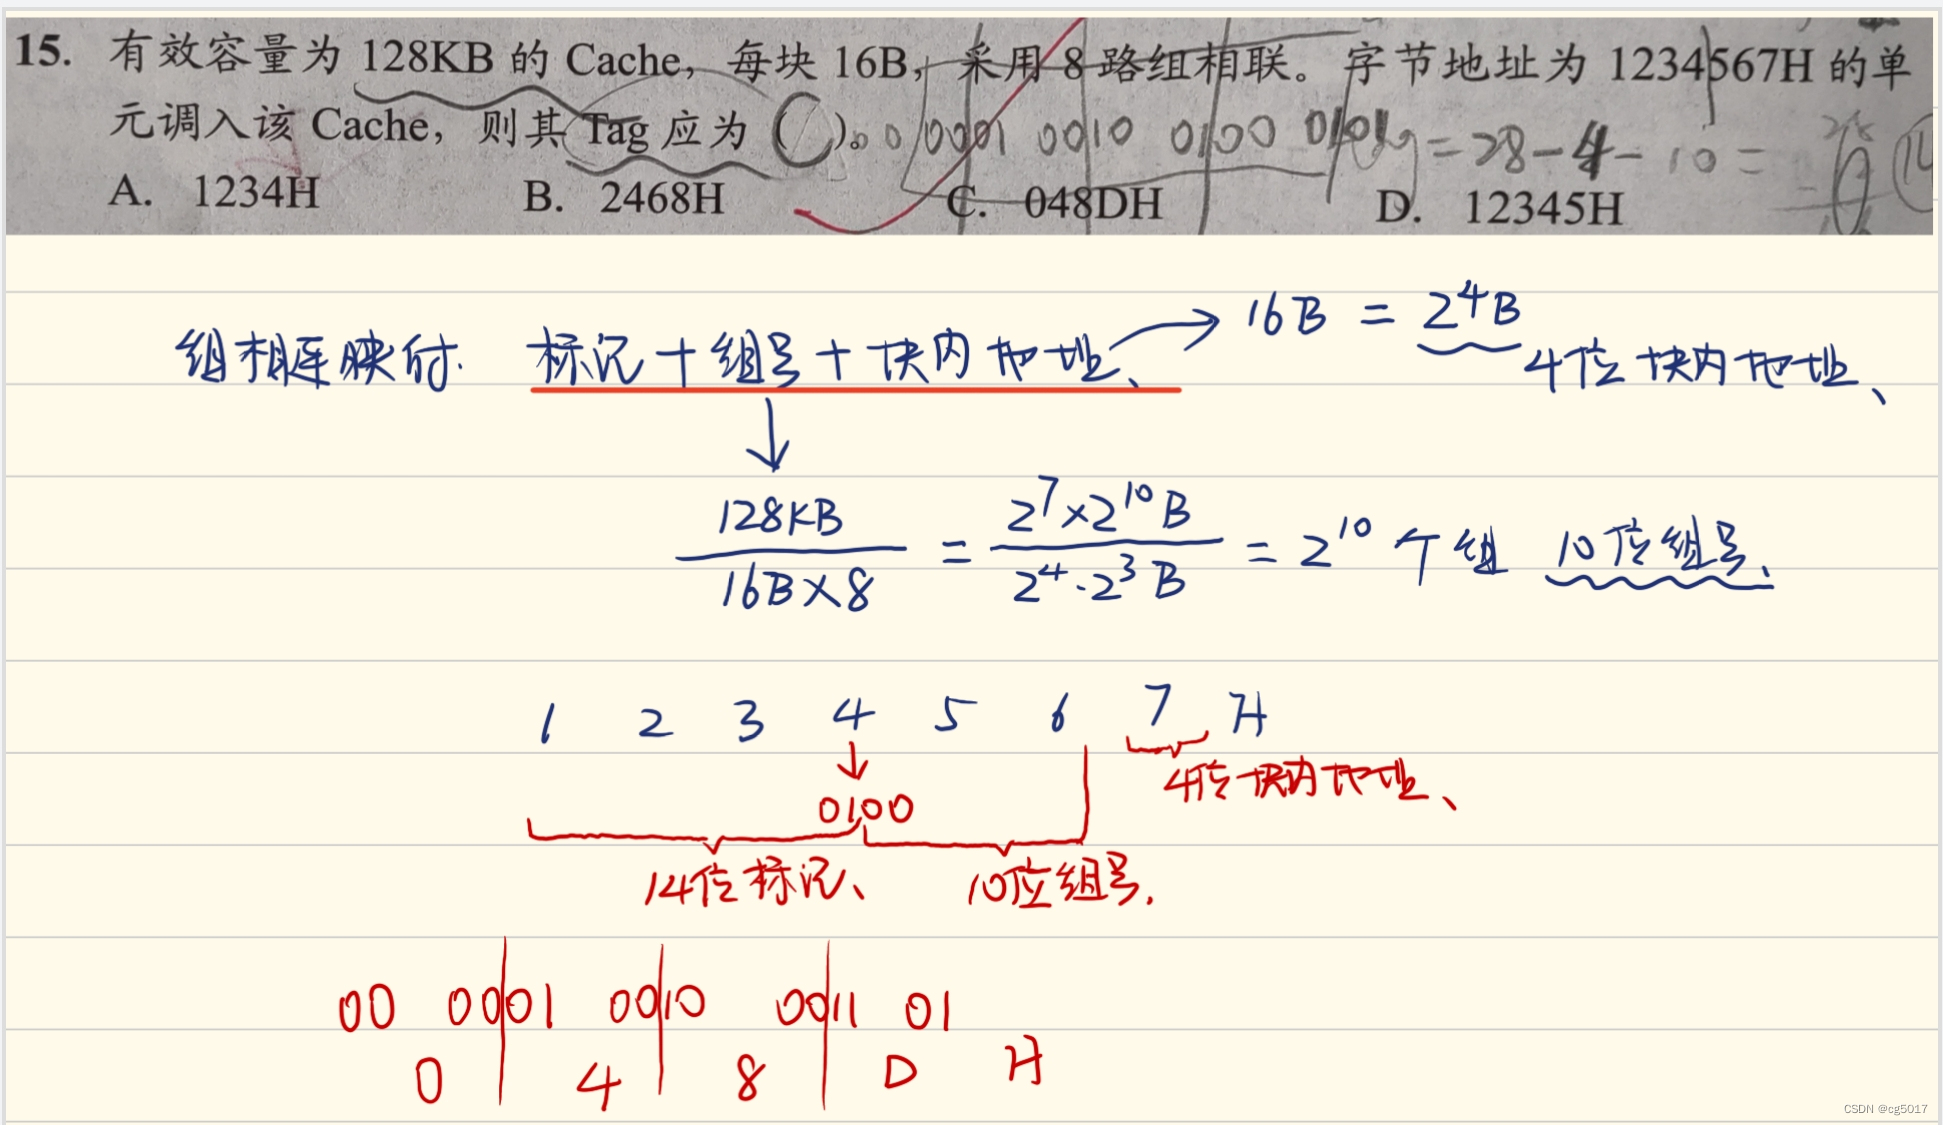 15. 有效容量为 128KB 的 Cache，每块 16B，采用 8 路组相联。字节地址为 1234567H 的单
元调入该 Cache，则其 Tag 应为（C）。
0 0 0001 0010 0100 0101 = 28-4-10=
A. 1234H B. 2468H C. 048DH D. 12345H
组相连映射. 标记+组号+块内地址、 → 16B = 2⁴B
4位块内地址、
128KB / 16B×8 = 2⁷×2¹⁰B / 2⁴·2³B = 2¹⁰个组 10位组号、
1 2 3 4 5 6 7 H
4位块内地址、
0100
14位标记、 10位组号.
00 0001 0010 0011 01
0 4 8 D H
CSDN @cg5017